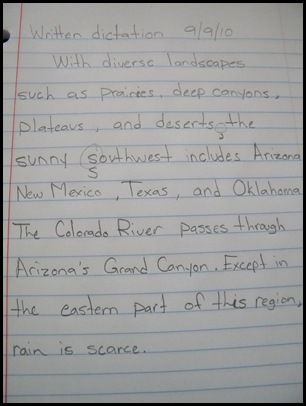 Written dictation 9/9/10
With diverse landscapes
such as prairies, deep canyons,
plateaus, and deserts, the
sunny southwest includes Arizona
New Mexico, Texas, and Oklahoma
The Colorado River passes through
Arizona's Grand Canyon. Except in
the eastern part of this region,
rain is scarce.